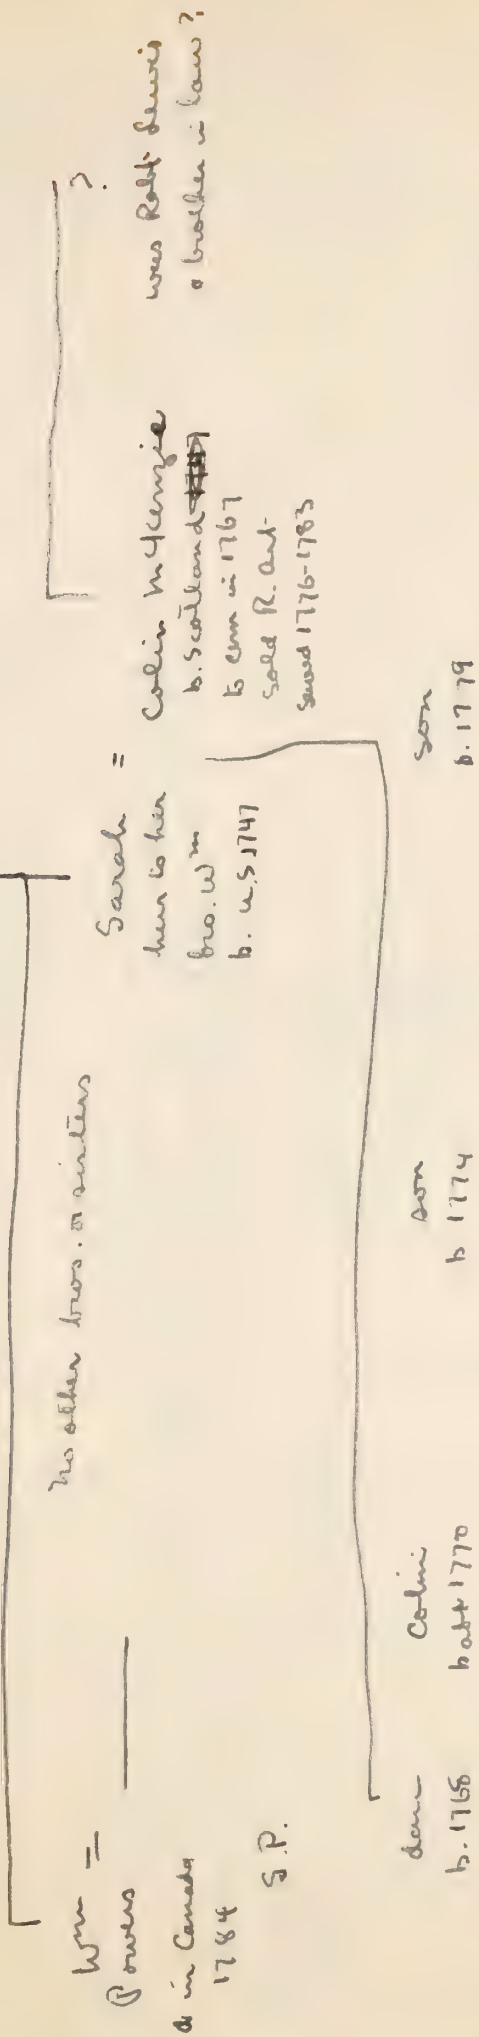 Wm =
Powers
d in Canada
1784
S.P.
No other bros. or sisters
Sarah =
heir to her
bro. Wm
b. U.S 1747
Colin McKenzie
b. Scotland
to
in 1767
Sold R.
served 1776-1783
?
was Robt Lewis
a brother in law?
dau
b. 1768
Colin
bapt 1770
son
b 1774
son
b. 1779